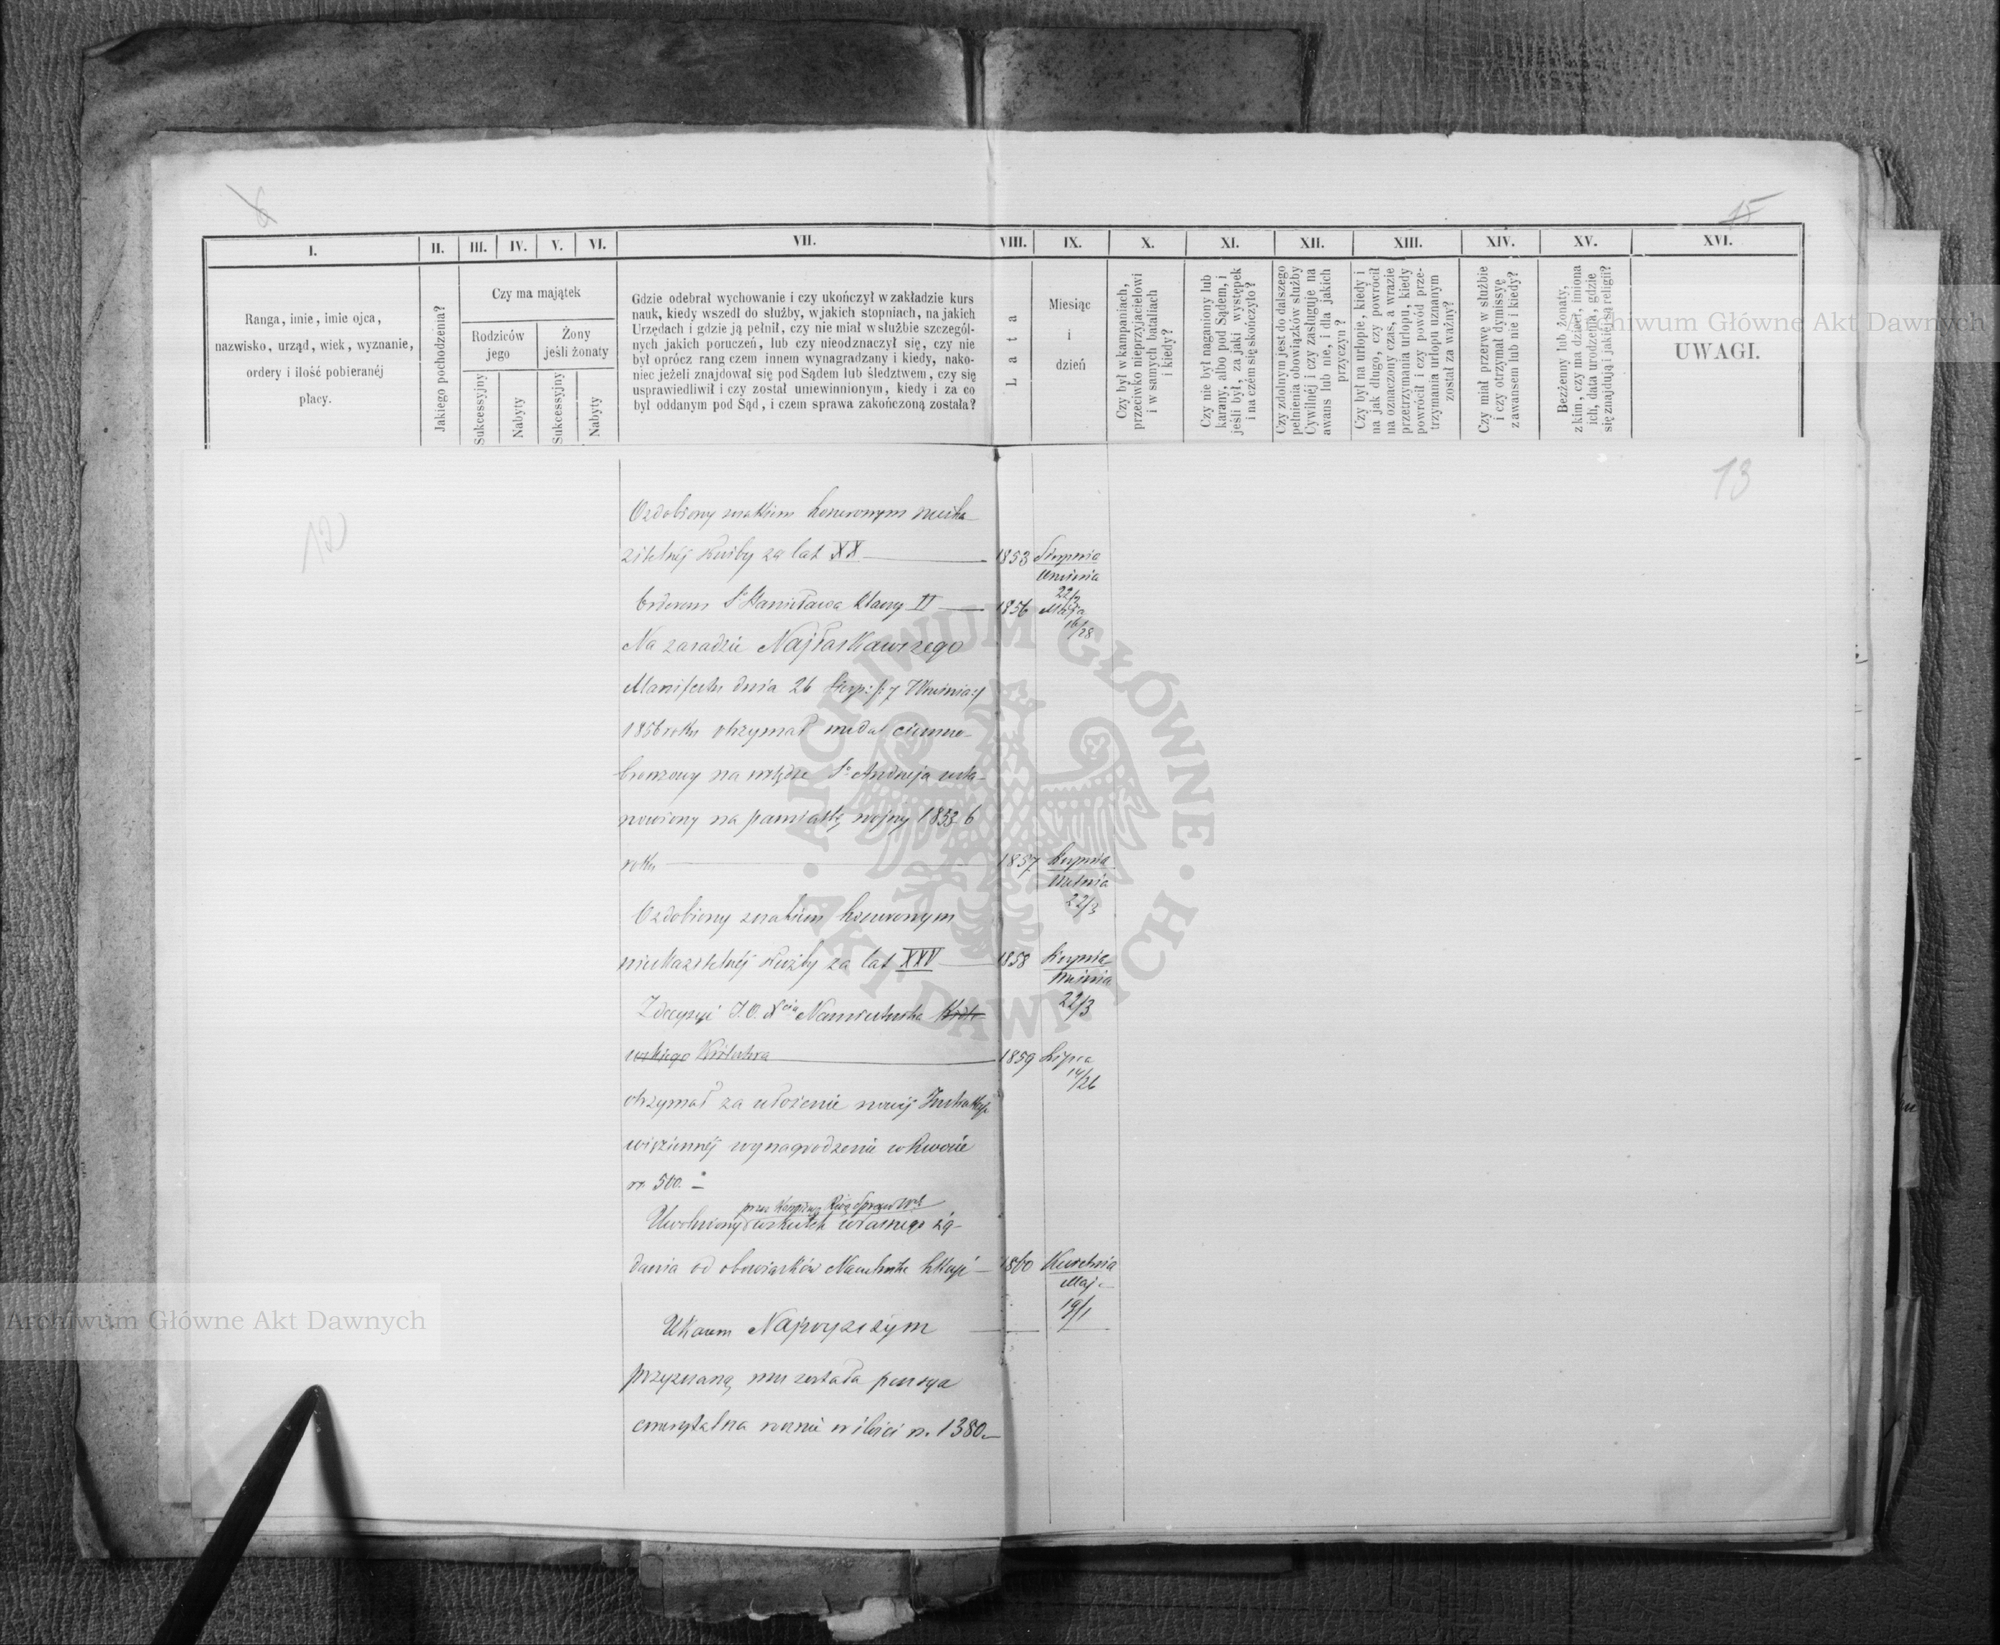 6
15
I.
II.
III.
IV.
V.
VI.
VII.
VIII.
IX.
X.
XI.
XII.
XIII.
XIV.
XV.
XVI.
Ranga, imie, imie ojca,
nazwisko, urząd, wiek, wyznanie,
ordery i ilość pobieranéj
płacy.
Jakiego pochodzenia?
Czy ma majątek
Rodziców
jego
Żony
jeśli żonaty
Sukcessyjny
Nabyty
Sukcessyjny
Nabyty
Gdzie odebrał wychowanie i czy ukończył w zakładzie kurs
nauk, kiedy wszedł do służby, w jakich stopniach, na jakich
Urzędach i gdzie ją pełnił, czy nie miał w służbie szczegól-
nych jakich poruczeń, lub czy nieodznaczył się, czy nie
był oprócz rang czem innem wynagradzany i kiedy, nako-
niec jeżeli znajdował się pod Sądem lub śledztwem, czy się
usprawiedliwił i czy został uniewinnionym, kiedy i za co
był oddanym pod Sąd, i czem sprawa zakończoną została?
Lata
Miesiąc
i
dzień
Czy był w kampaniach,
przeciwko nieprzyjacielowi
i w samych bataliach
i kiedy?
Czy nie był naganiony lub
karany, albo pod Sądem, i
jeśli był, za jaki występek
i na czém się skończyło?
Czy zdolnym jest do dalszego
pełnienia obowiązków służby
Cywilnéj i czy zasługuje na
awans lub nie, i dla jakich
przyczyn?
Czy był na urlopie, kiedy i
na jak długo, czy powrócił
na oznaczony czas, a wrazie
przetrzymania urlopu, kiedy
powrócił i czy powód prze-
trzymania urlopu uznanym
został za ważny?
Czy miał przerwę w służbie
i czy otrzymał dymissyę
z awansem lub nie i kiedy?
Bezżenny lub żonaty,
z kim, czy ma dzieci, imiona
ich, data urodzenia, gdzie
się znajdują i jakiej są religii?
UWAGI.
13
12
Ozdobiony znakiem honorowym nieska-
zitelnéj służby za lat XX 1853 Sierpnia
Września
22/3
Orderem Sgo Stanisława klassy II 1856 Maja
16/28
Na zasadzie Najłaskawszego
Manifestu dnia 26 Sierp: /: 7 Września :/
1856 roku otrzymał medal ciemno-
bronzowy na wstędze Sgo Andrzeja usta-
nowiony na pamiątkę wojny 1853 6
roku 1857 Sierpnia
Września
22/3
Ozdobiony znakiem honorowym
nieskazitelnéj służby za lat XXV 1858 Sierpnia
Września
22/3
Z decyzyi J. O. Xcia Namiestnika Króle-
wskiego Królestwa 1859 Lipca
14/26
otrzymał za ułożenie nowéj Instrukcyi
więziennéj wynagrodzenie w kwocie
rs. 500.
przez Kommissyę Rząd. Spraw Wew.
Uwolniony wskutek własnego żą-
dania od obowiązków Naczelnika Sekcyi 1860 Kwietnia
Maja
19/1
Ukazem Najwyższym
przyznaną mu została pensya
emerytalna rocznie w ilości rs. 1380.
ARCHIWUM GŁÓWNE AKT DAWNYCH
Archiwum Główne Akt Dawnych
Archiwum Główne Akt Dawnych